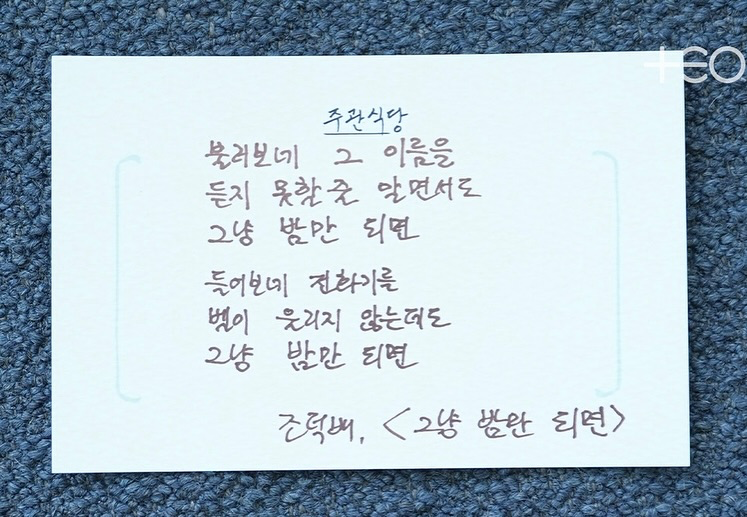 TEO
주관식당
불러보네 그 이름을
듣지 못할 줄 알면서도
그냥 밤만 되면
들어보네 전화기를
벨이 울리지 않는데도
그냥 밤만 되면
조덕배, <그냥 밤만 되면>